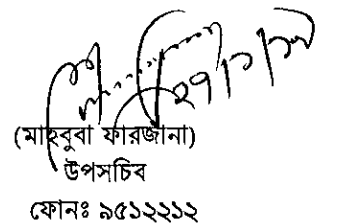 ২৭/১/১৯
(মাহবুবা ফারজানা)
উপসচিব
ফোনঃ ৯৫১২২১২